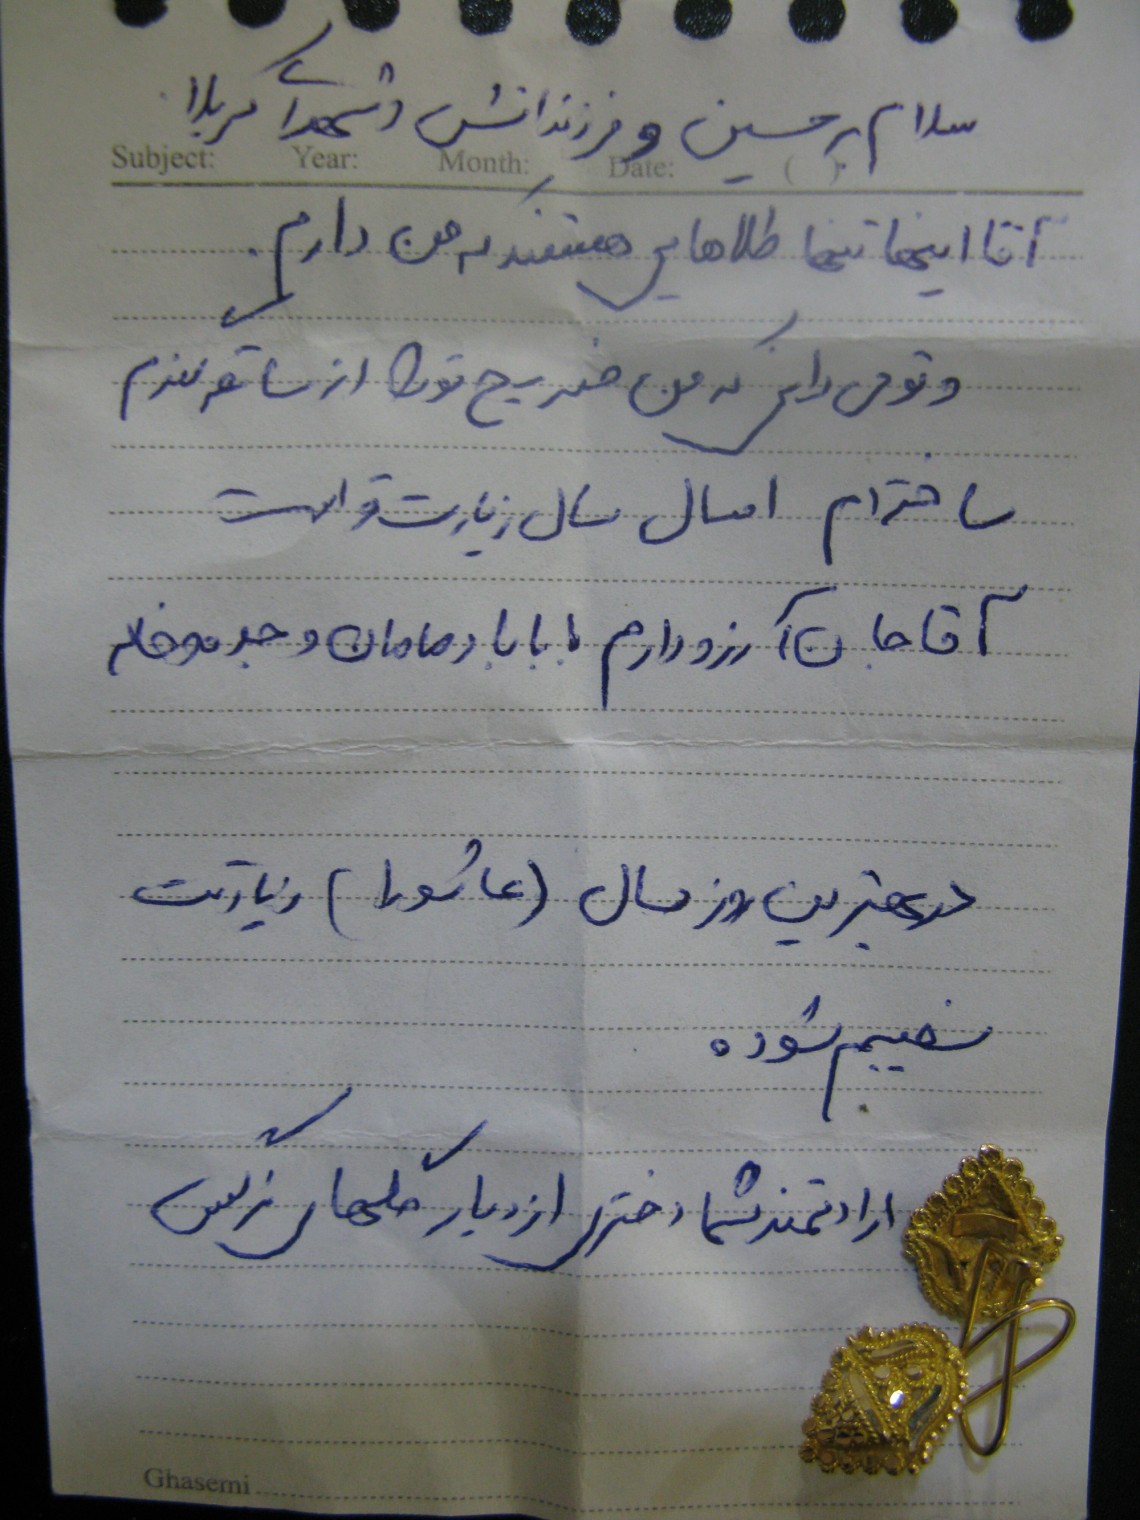 سلام بر حسین و فرزندانش و شهدای کربلا
Subject: Year: Month: Date: ( )
آقا اینها تنها طلاهایی هستند که من دارم.
و تو می دانی که من ضریح تو را از ساقه گندم
ساخته‌ام امسال سال زیارت تو است
آقا جان آرزو دارم با بابا و مامان و
در بهترین روز سال (عاشورا) زیارت
نصیبم شود
ارادتمند شما دختری از دیار گلهای نرگس
Ghasemi